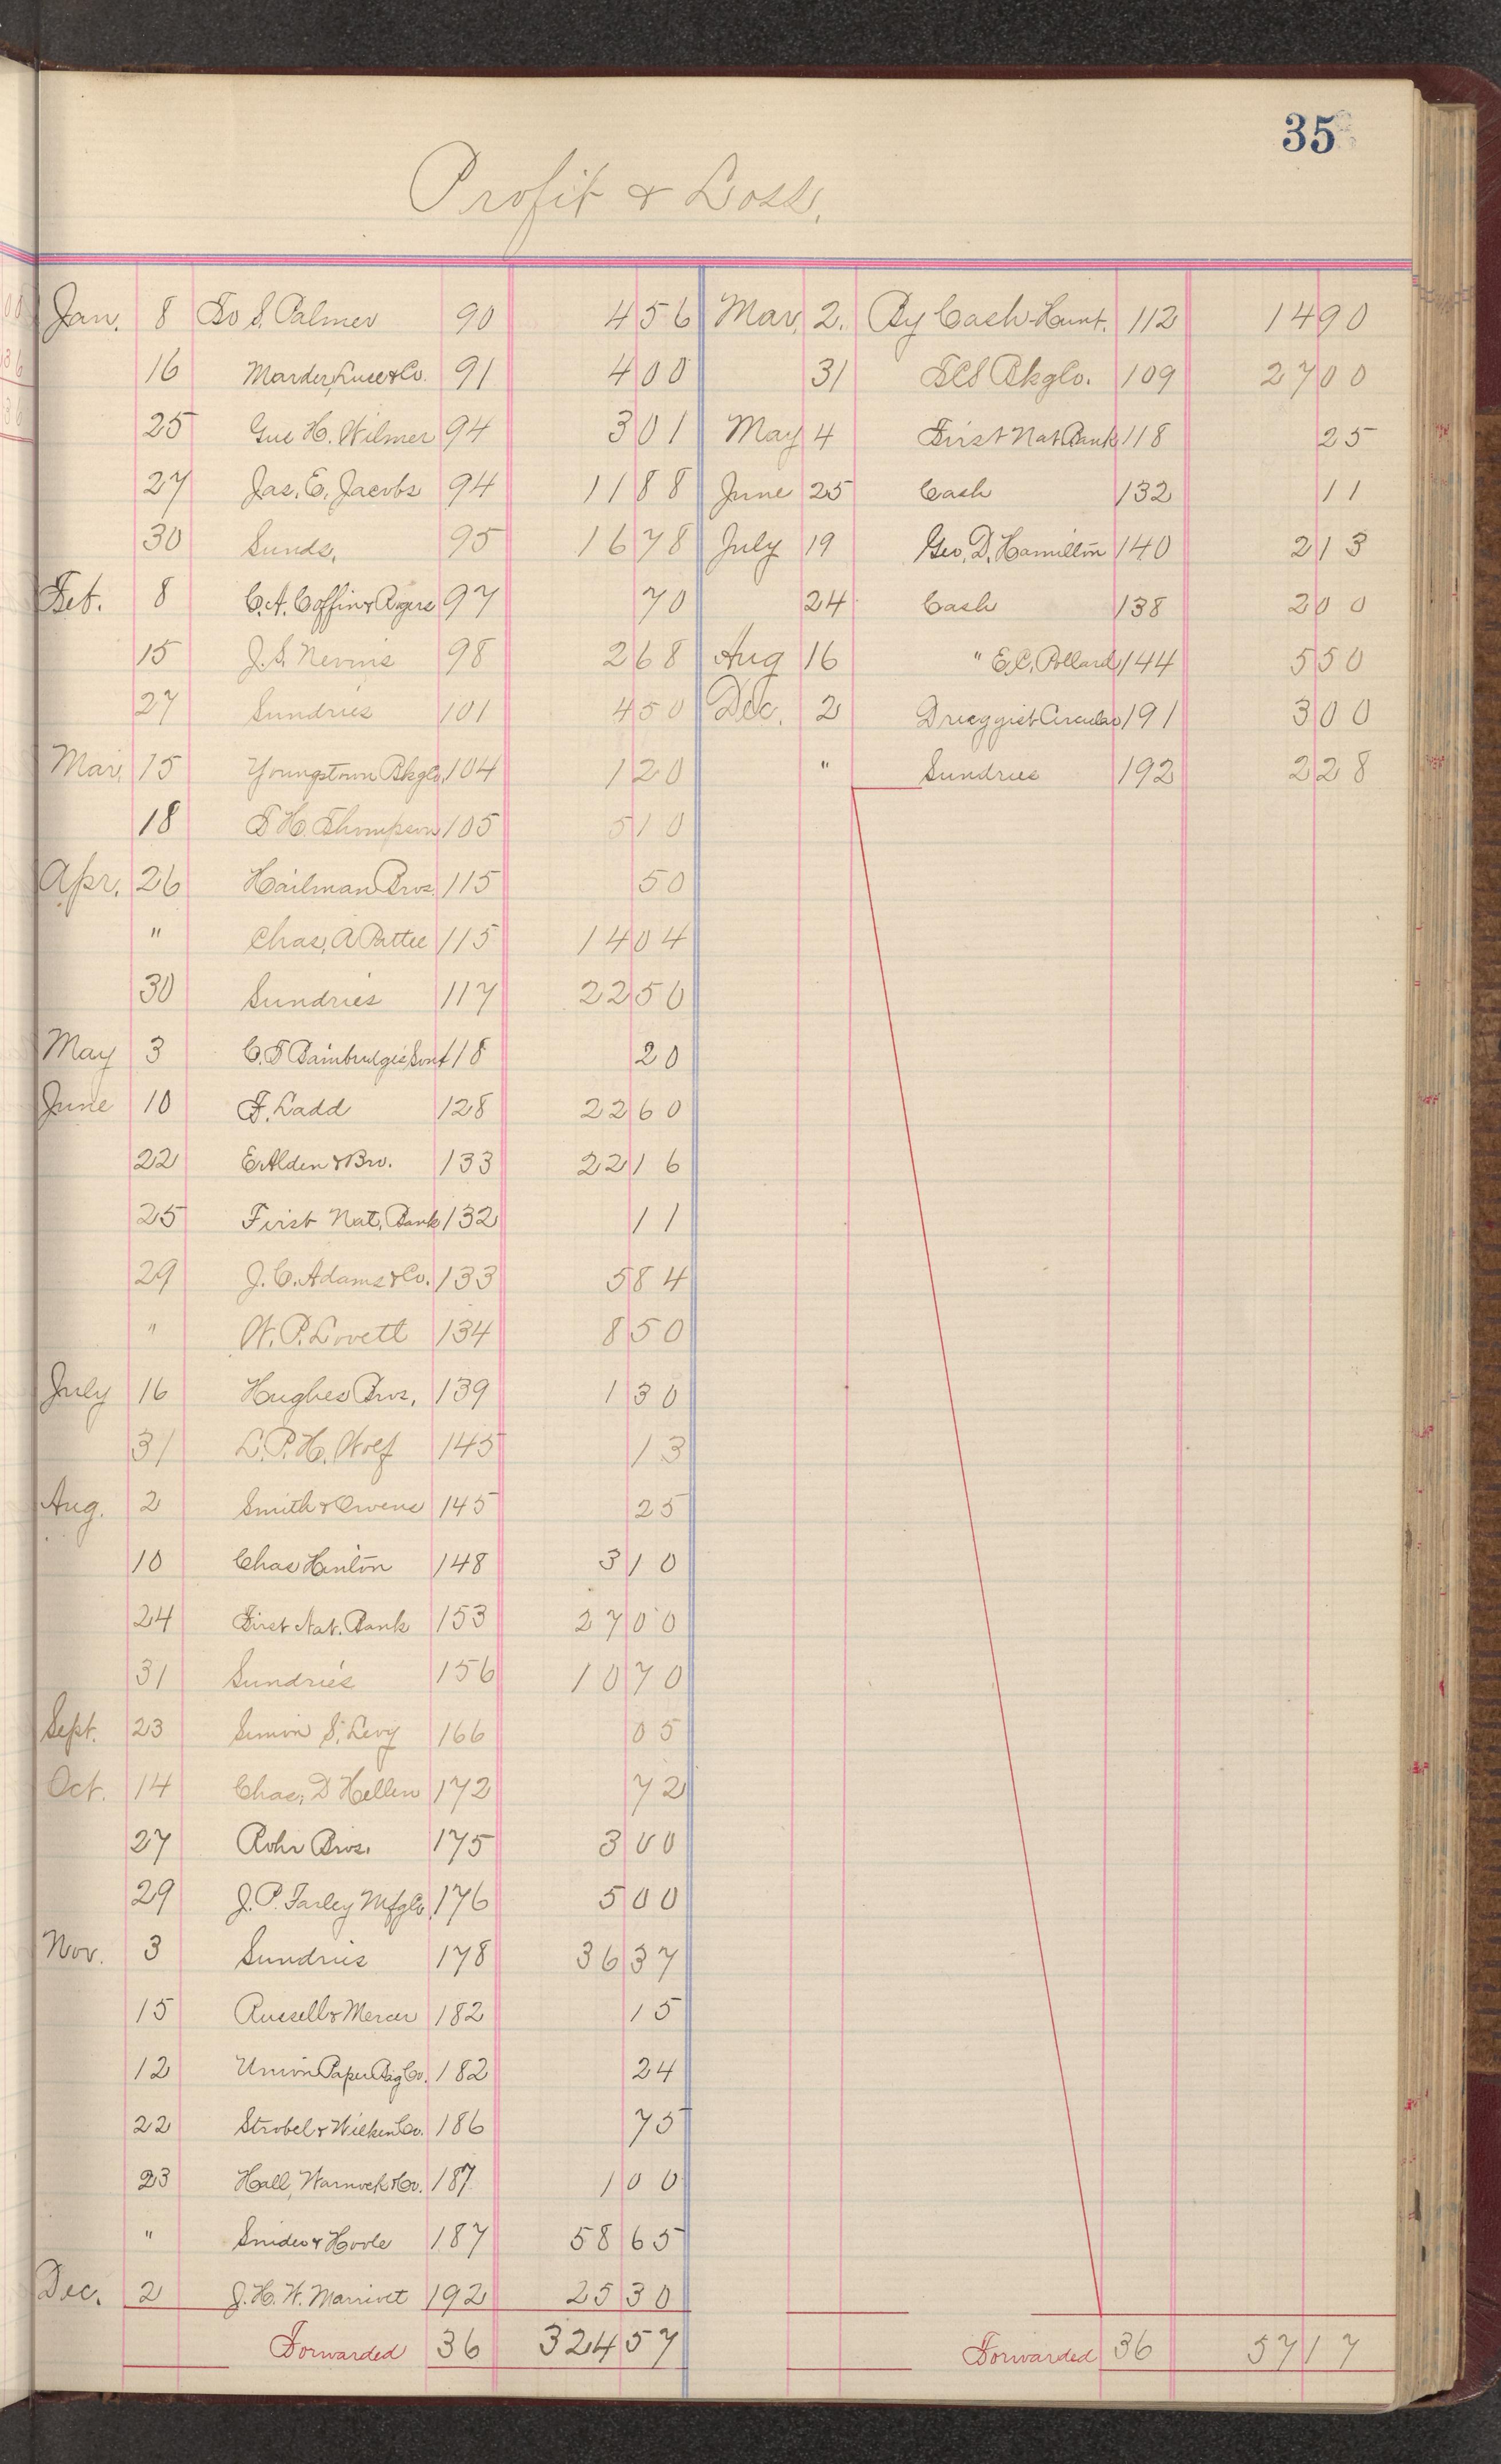 35
Profit & Loss.
Jan. 8 To S. Palmer 90 4 56
16 Marder, Luse & Co. 91 4 00
25 Gus H. Wilmer 94 3 01
27 Jas. E. Jacobs 94 11 88
30 Sunds. 95 16 78
Feb. 8 C.A. Coffin & Rogers 97 70
15 J.S. Nevins 98 2 68
27 Sundries 101 4 50
Mar. 15 Youngstown BkgCo. 104 1 20
18 T H. Thompson 105 5 10
Apr. 26 Hailman Bros. 115 50
" Chas. A Pattee 115 14 04
30 Sundries 117 22 50
May 3 C. T Bainbridge's Sons 118 20
June 10 F. Ladd 128 22 60
22 E Alden & Bro. 133 22 16
25 First Nat. Bank 132 11
29 J. C. Adams & Co. 133 5 84
" W. P. Lovett 134 8 50
July 16 Hughes Bros. 139 1 30
31 L. P. H. Wolf 145 13
Aug. 2 Smith & Owens 145 25
10 Chas Hinton 148 3 10
24 First Nat. Bank 153 27 00
31 Sundries 156 10 70
Sept. 23 Simon S. Levy 166 05
Oct. 14 Chas. D Hellen 172 72
27 Rohr Bros. 175 3 00
29 J. P. Farley MfgCo. 176 5 00
Nov. 3 Sundries 178 36 37
15 Russell & Mercer 182 15
12 Union Paper Bag Co. 182 24
22 Strobel & Wilken Co. 186 75
23 Hall, Warnock & Co. 187 1 00
" Snider & Hoole 187 58 65
Dec. 2 J. H. W. Marriott 192 25 30
Forwarded 36 324 57
Mar. 2. By Cash-Hunt. 112 14 90
31 BkgCo. 109 27 00
May 4 First Nat Bank 118 25
June 25 Cash 132 11
July 19 Geo. D. Hamilton 140 2 13
24 Cash 138 2 00
Aug 16 " E.C. Pollard 144 5 50
Dec. 2 Druggist Circular 191 3 00
" Sundries 192 2 28
Forwarded 36 57 17